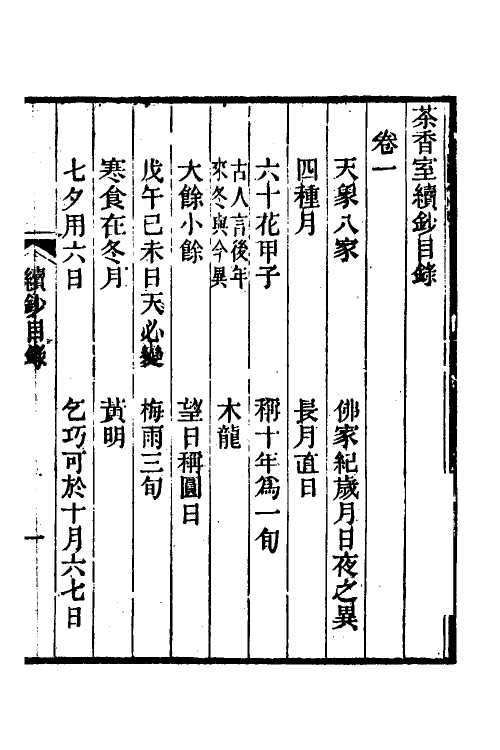 茶香室續鈔目錄
卷一
天象八家　佛家紀歲月日夜之異
四種月　長月直日
六十花甲子　稱十年為一旬
古人言後年來冬與今異　木龍
大餘小餘　望日稱圓日
戊午己未日天必變　梅雨三旬
寒食在冬月　黃明
七夕用六日　乞巧可於十月六七日
續鈔目錄　一